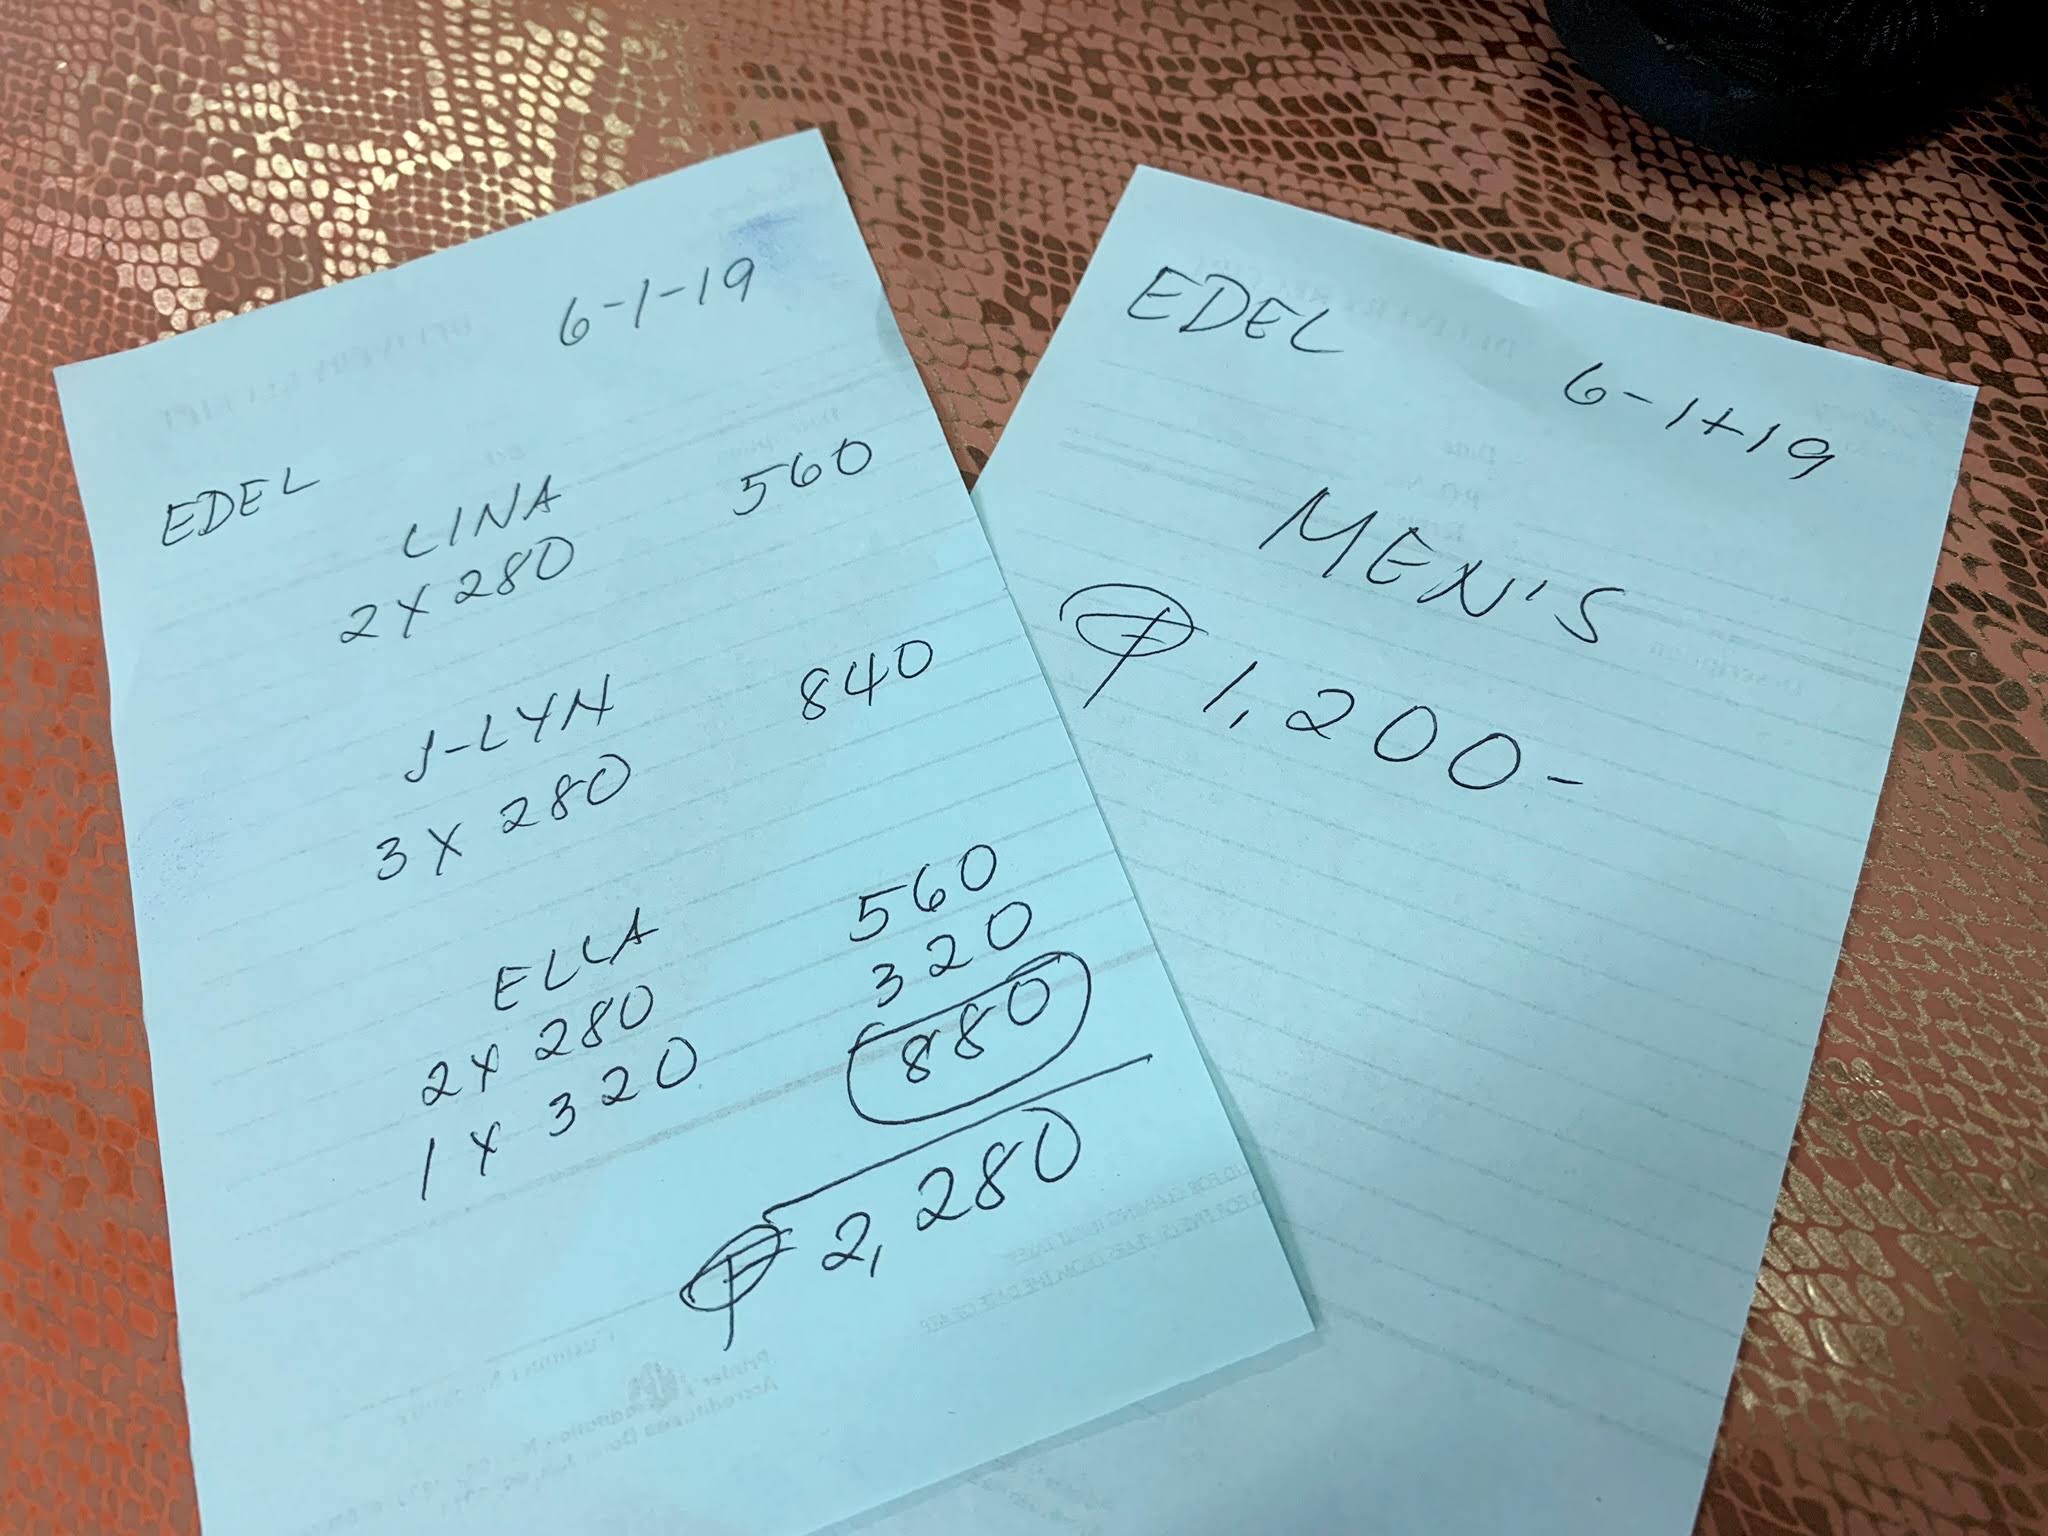 6-1-19
EDEL LINA 560
2 X 280
J-LYN 840
3 X 280
ELLA 560
2 X 280 320
1 X 320 880
₱ 2,280
EDEL
6-1-19
MEN'S
₱ 1,200-